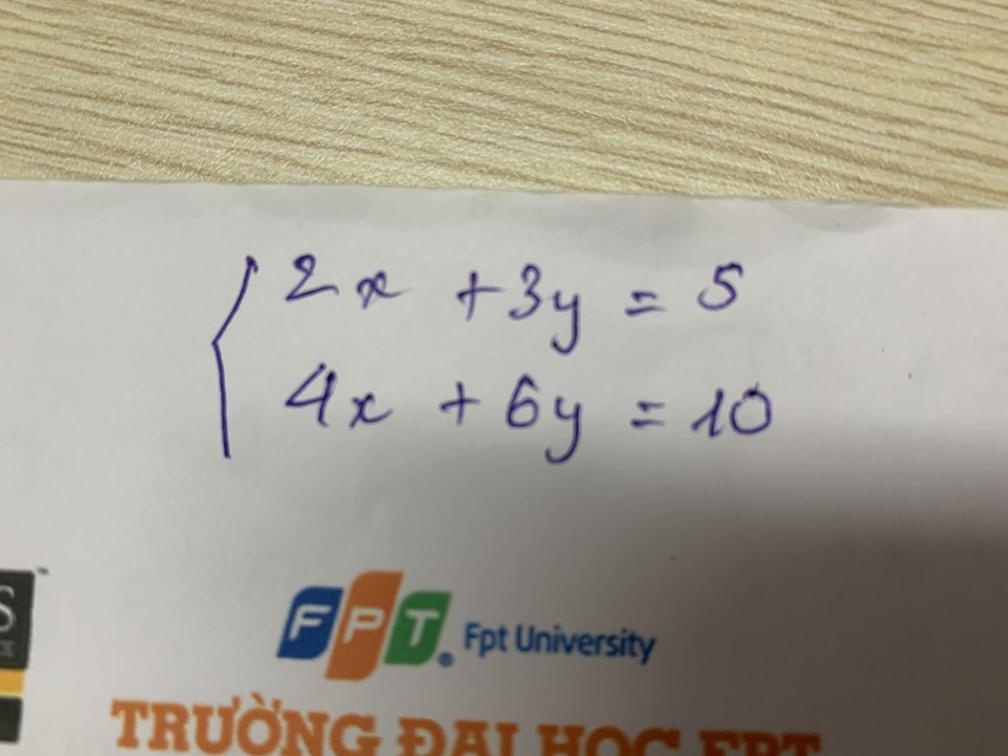 2x + 3y = 5
4x + 6y = 10
S
FPT. Fpt University
TRƯỜNG ĐẠI HỌC FPT